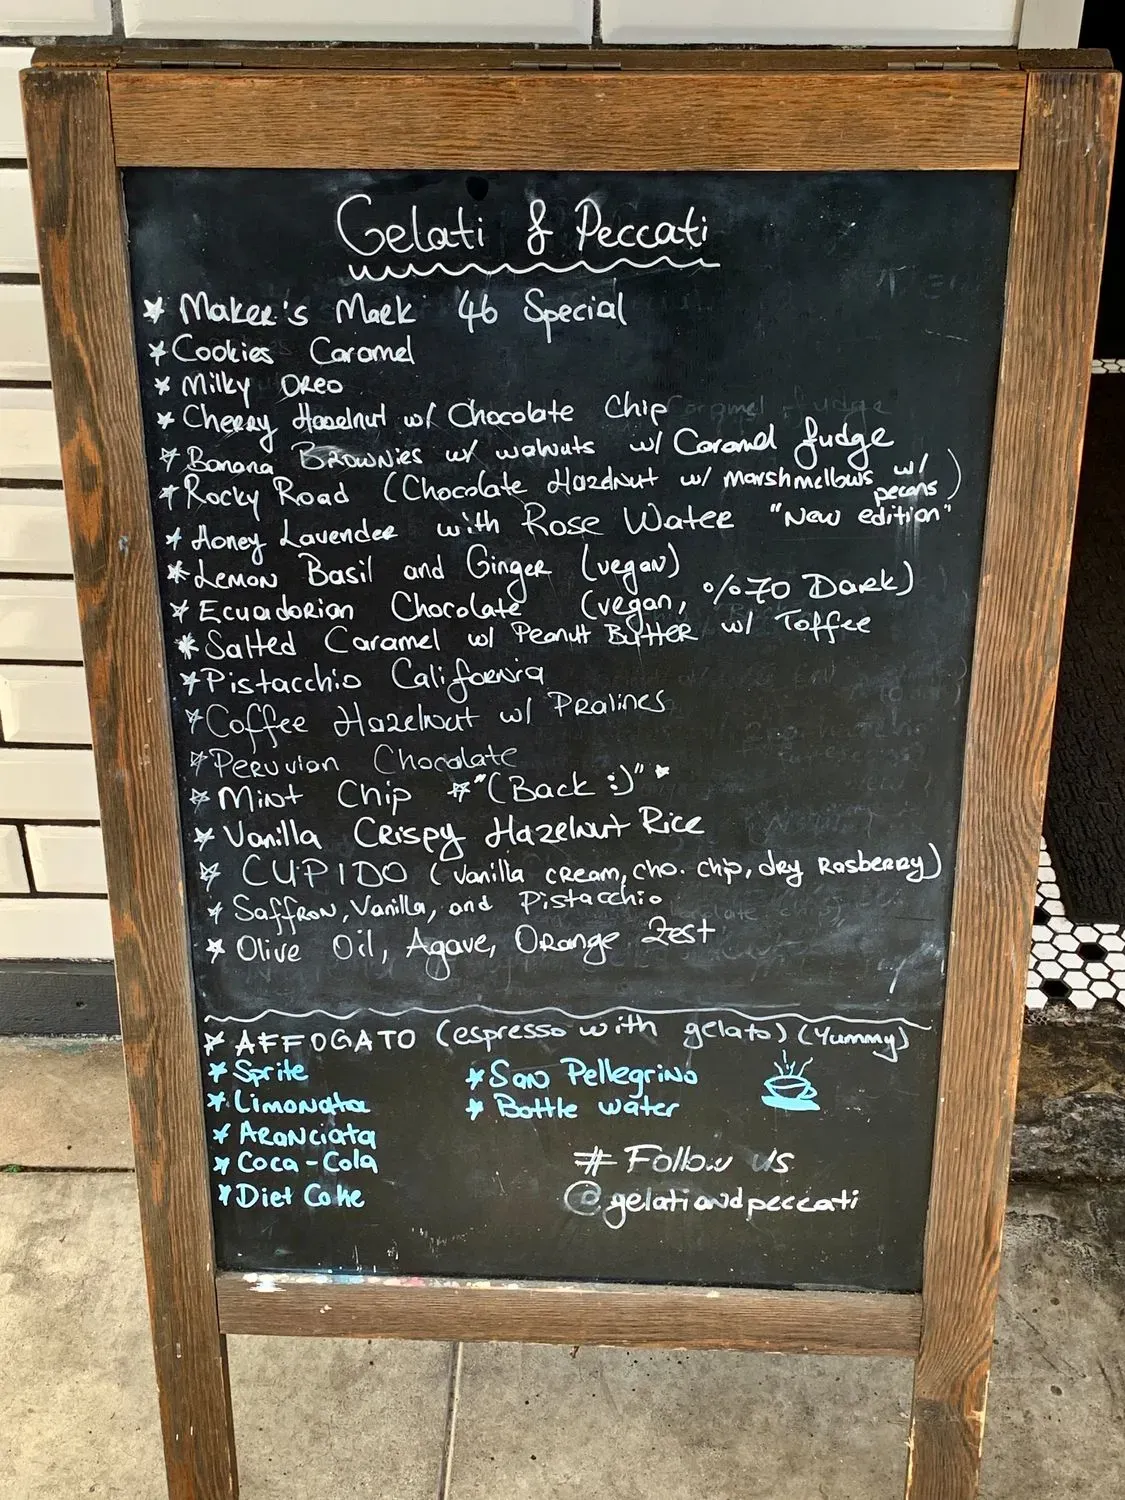 Gelati & Peccati
* Maker's Mark 46 Special
* Cookies Caramel
* Milky Oreo
* Cherry Hazelnut w/ Chocolate Chip
* Banana Brownies w/ walnuts w/ Caramel fudge
* Rocky Road (Chocolate Hazelnut w/ marshmellows w/ pecans)
* Honey Lavender with Rose Water "New edition"
* Lemon Basil and Ginger (vegan)
* Ecuadorian Chocolate (vegan, %70 Dark)
* Salted Caramel w/ Peanut Butter w/ Toffee
* Pistacchio California
* Coffee Hazelnut w/ Pralines
* Peruvian Chocolate
* Mint Chip *"(Back :)"*
* Vanilla Crispy Hazelnut Rice
* CUPIDO (vanilla cream, cho. chip, dry Rasberry)
* Saffron, Vanilla, and Pistacchio
* Olive Oil, Agave, Orange Zest
* AFFOGATO (espresso with gelato) (Yummy)
* Sprite
* Limonata
* Aranciata
* Coca-Cola
* Diet Coke
* San Pellegrino
* Bottle water
# Follow us
@gelatiandpeccati